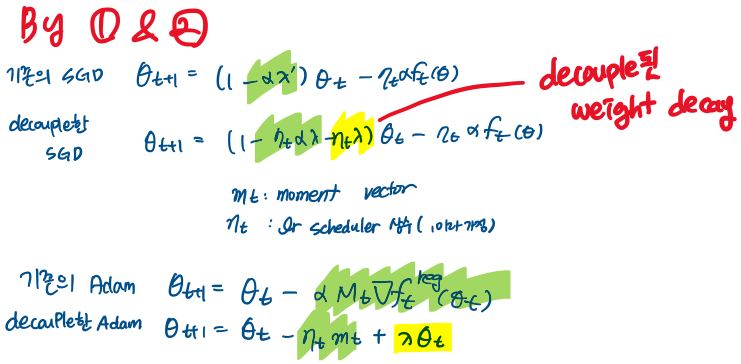 By ① & ②
기존의 SGD θt+1 = (1 - αλ') θt - ηtαft(θ)
decouple된 weight decay
decouple한 SGD θt+1 = (1 - ηtαλ - ηtλ) θt - ηt αft(θ)
mt : moment vector
ηt : lr scheduler 상수 (1이라 가정)
기존의 Adam θt+1 = θt - α Mt ∇ft^reg (θt)
decouple한 Adam θt+1 = θt - ηt mt + λθt